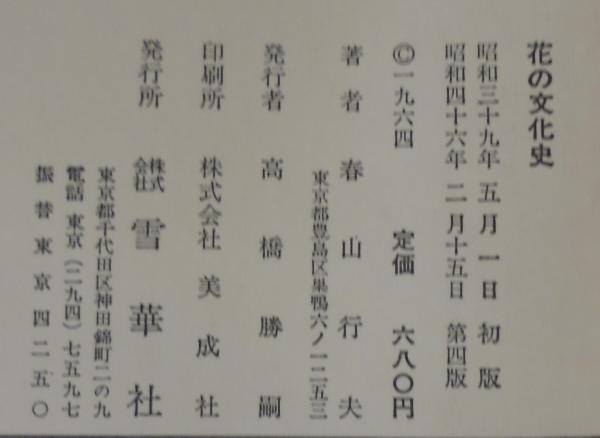 花の文化史
昭和三十九年五月一日 初版
昭和四十六年二月十五日 第四版
©一九六四 定価 六八〇円
著者 春山行夫
東京都豊島区巣鴨六ノ一二五三
発行者 高橋勝嗣
印刷所 株式会社美成社
発行所 株式会社 雪華社
東京都千代田区神田錦町二の九
電話 東京(二九四)七五九七
振替東京四二五〇